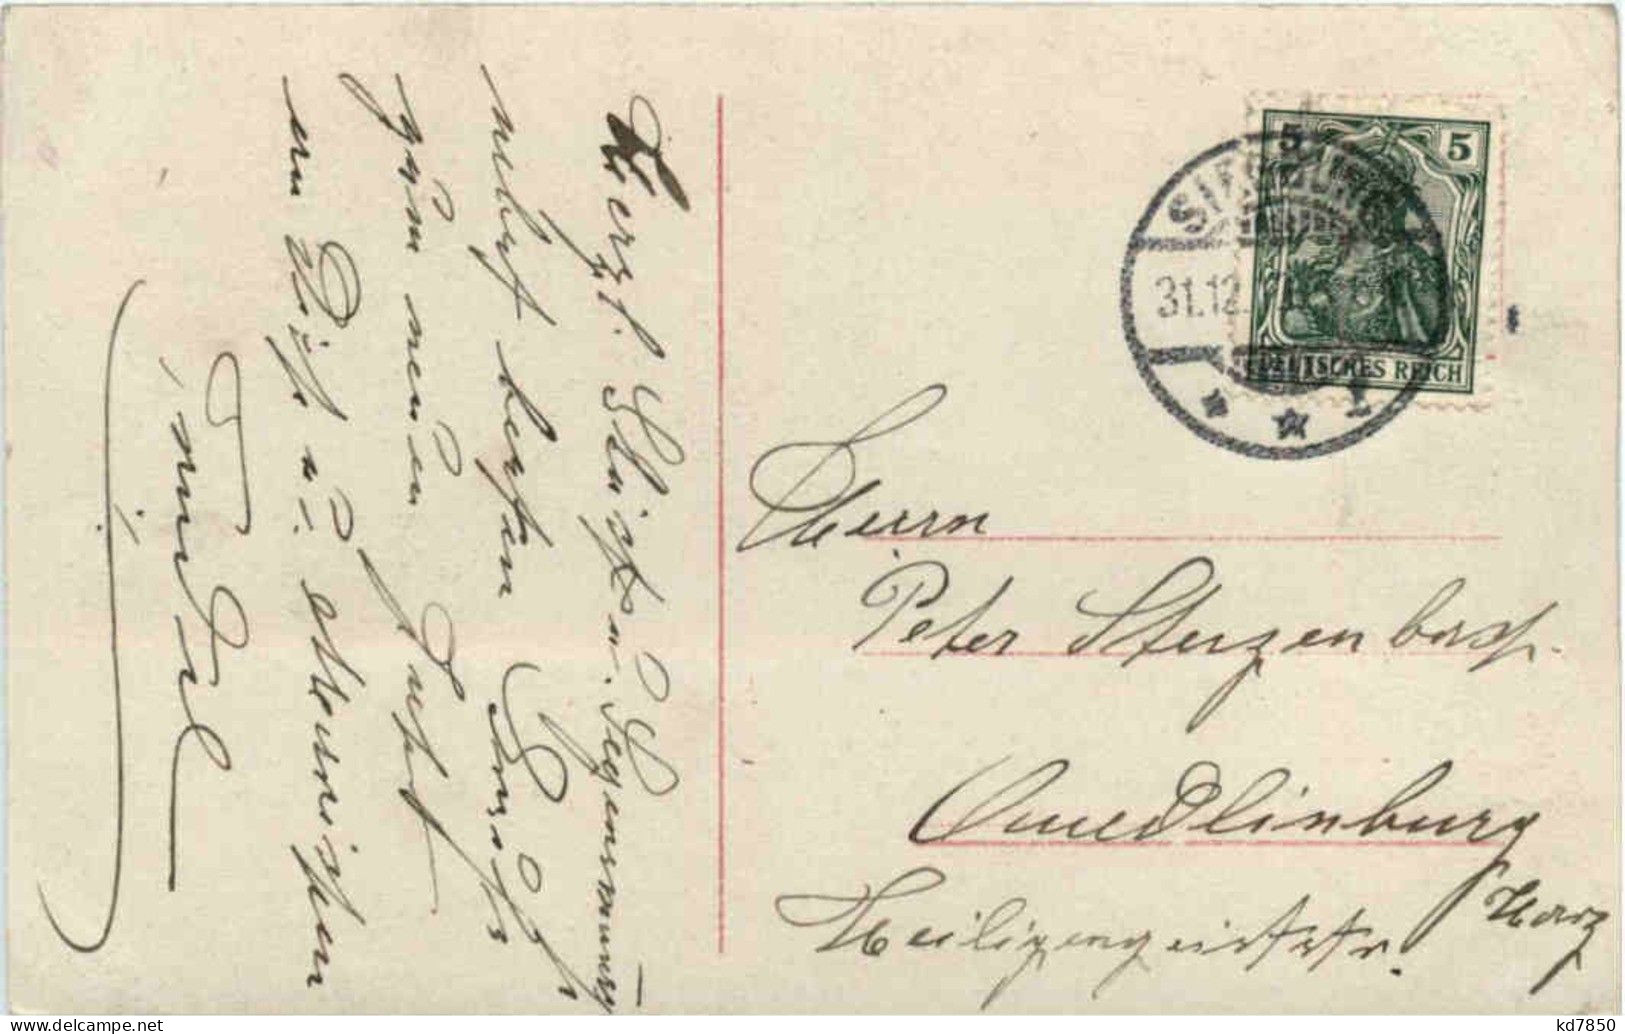 Herzl. Glückw. u. Segenswunsch
nebst besten Grüßen
zum neuen Jahr
an Dich u.
Emil
5 5
SIEGBURG
31.12.
DEUTSCHES REICH
1
Herrn
Peter Sterzenbach.
Quedlinburg
Harz
Heiligengeiststr.
delcampe.net
kd7850